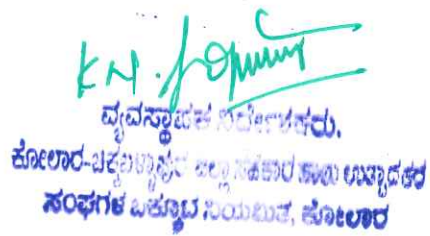 K N.
ವ್ಯವಸ್ಥಾಪಕ ನಿರ್ದೇಶಕರು.
ಕೋಲಾರ-ಚಿಕ್ಕಬಳ್ಳಾಪುರ ಜಿಲ್ಲಾ ಸಹಕಾರ ಹಾಲು ಉತ್ಪಾದಕರ
ಸಂಘಗಳ ಒಕ್ಕೂಟ ನಿಯಮಿತ, ಕೋಲಾರ